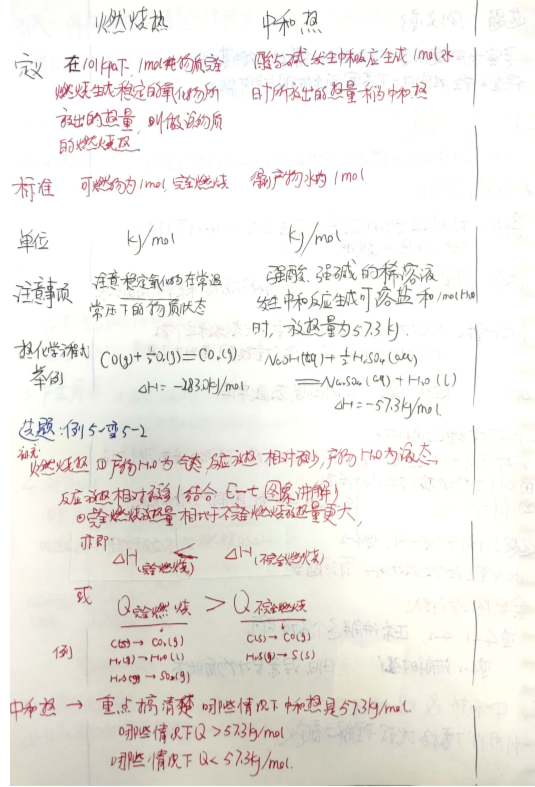 燃烧热 中和热
定义 在101kpa下,1mol纯物质完全 酸与碱发生中和反应生成1mol水
燃烧生成稳定的氧化物所 时所放出的热量称中和热
放出的热量,叫做该物质
的燃烧热
标准 可燃物为1mol 完全燃烧 得产物水为1mol
单位 kJ/mol kJ/mol
注意事项 注意稳定氧化物在常温 强酸、强碱的稀溶液
常压下的物质状态 发生中和反应生成可溶盐和1molH₂O
时,放热量为57.3kJ.
热化学方程式 CO(g)+½O₂(g)=CO₂(g) NaOH(aq)+½H₂SO₄(aq)
举例 ΔH=-283.0kJ/mol =½Na₂SO₄(aq)+H₂O(l)
ΔH=-57.3kJ/mol
选题:例5-变5-2
补充
燃烧热 ①产物H₂O为气态,反应放热相对较少,产物H₂O为液态
反应放热相对较多(结合E-t图象讲解)
②完全燃烧放热量相比于不完全燃烧放热量更大,
亦即 ΔH(完全燃烧) < ΔH(不完全燃烧)
或 Q完全燃烧 > Q不完全燃烧
C(s)→CO₂(g) C(s)→CO(g)
例 H₂(g)→H₂O(l) H₂S(g)→S(s)
H₂S(g)→SO₂(g)
中和热 → 重点搞清楚 哪些情况下中和热是57.3kJ/mol
哪些情况下Q>57.3kJ/mol
哪些情况下Q<57.3kJ/mol.